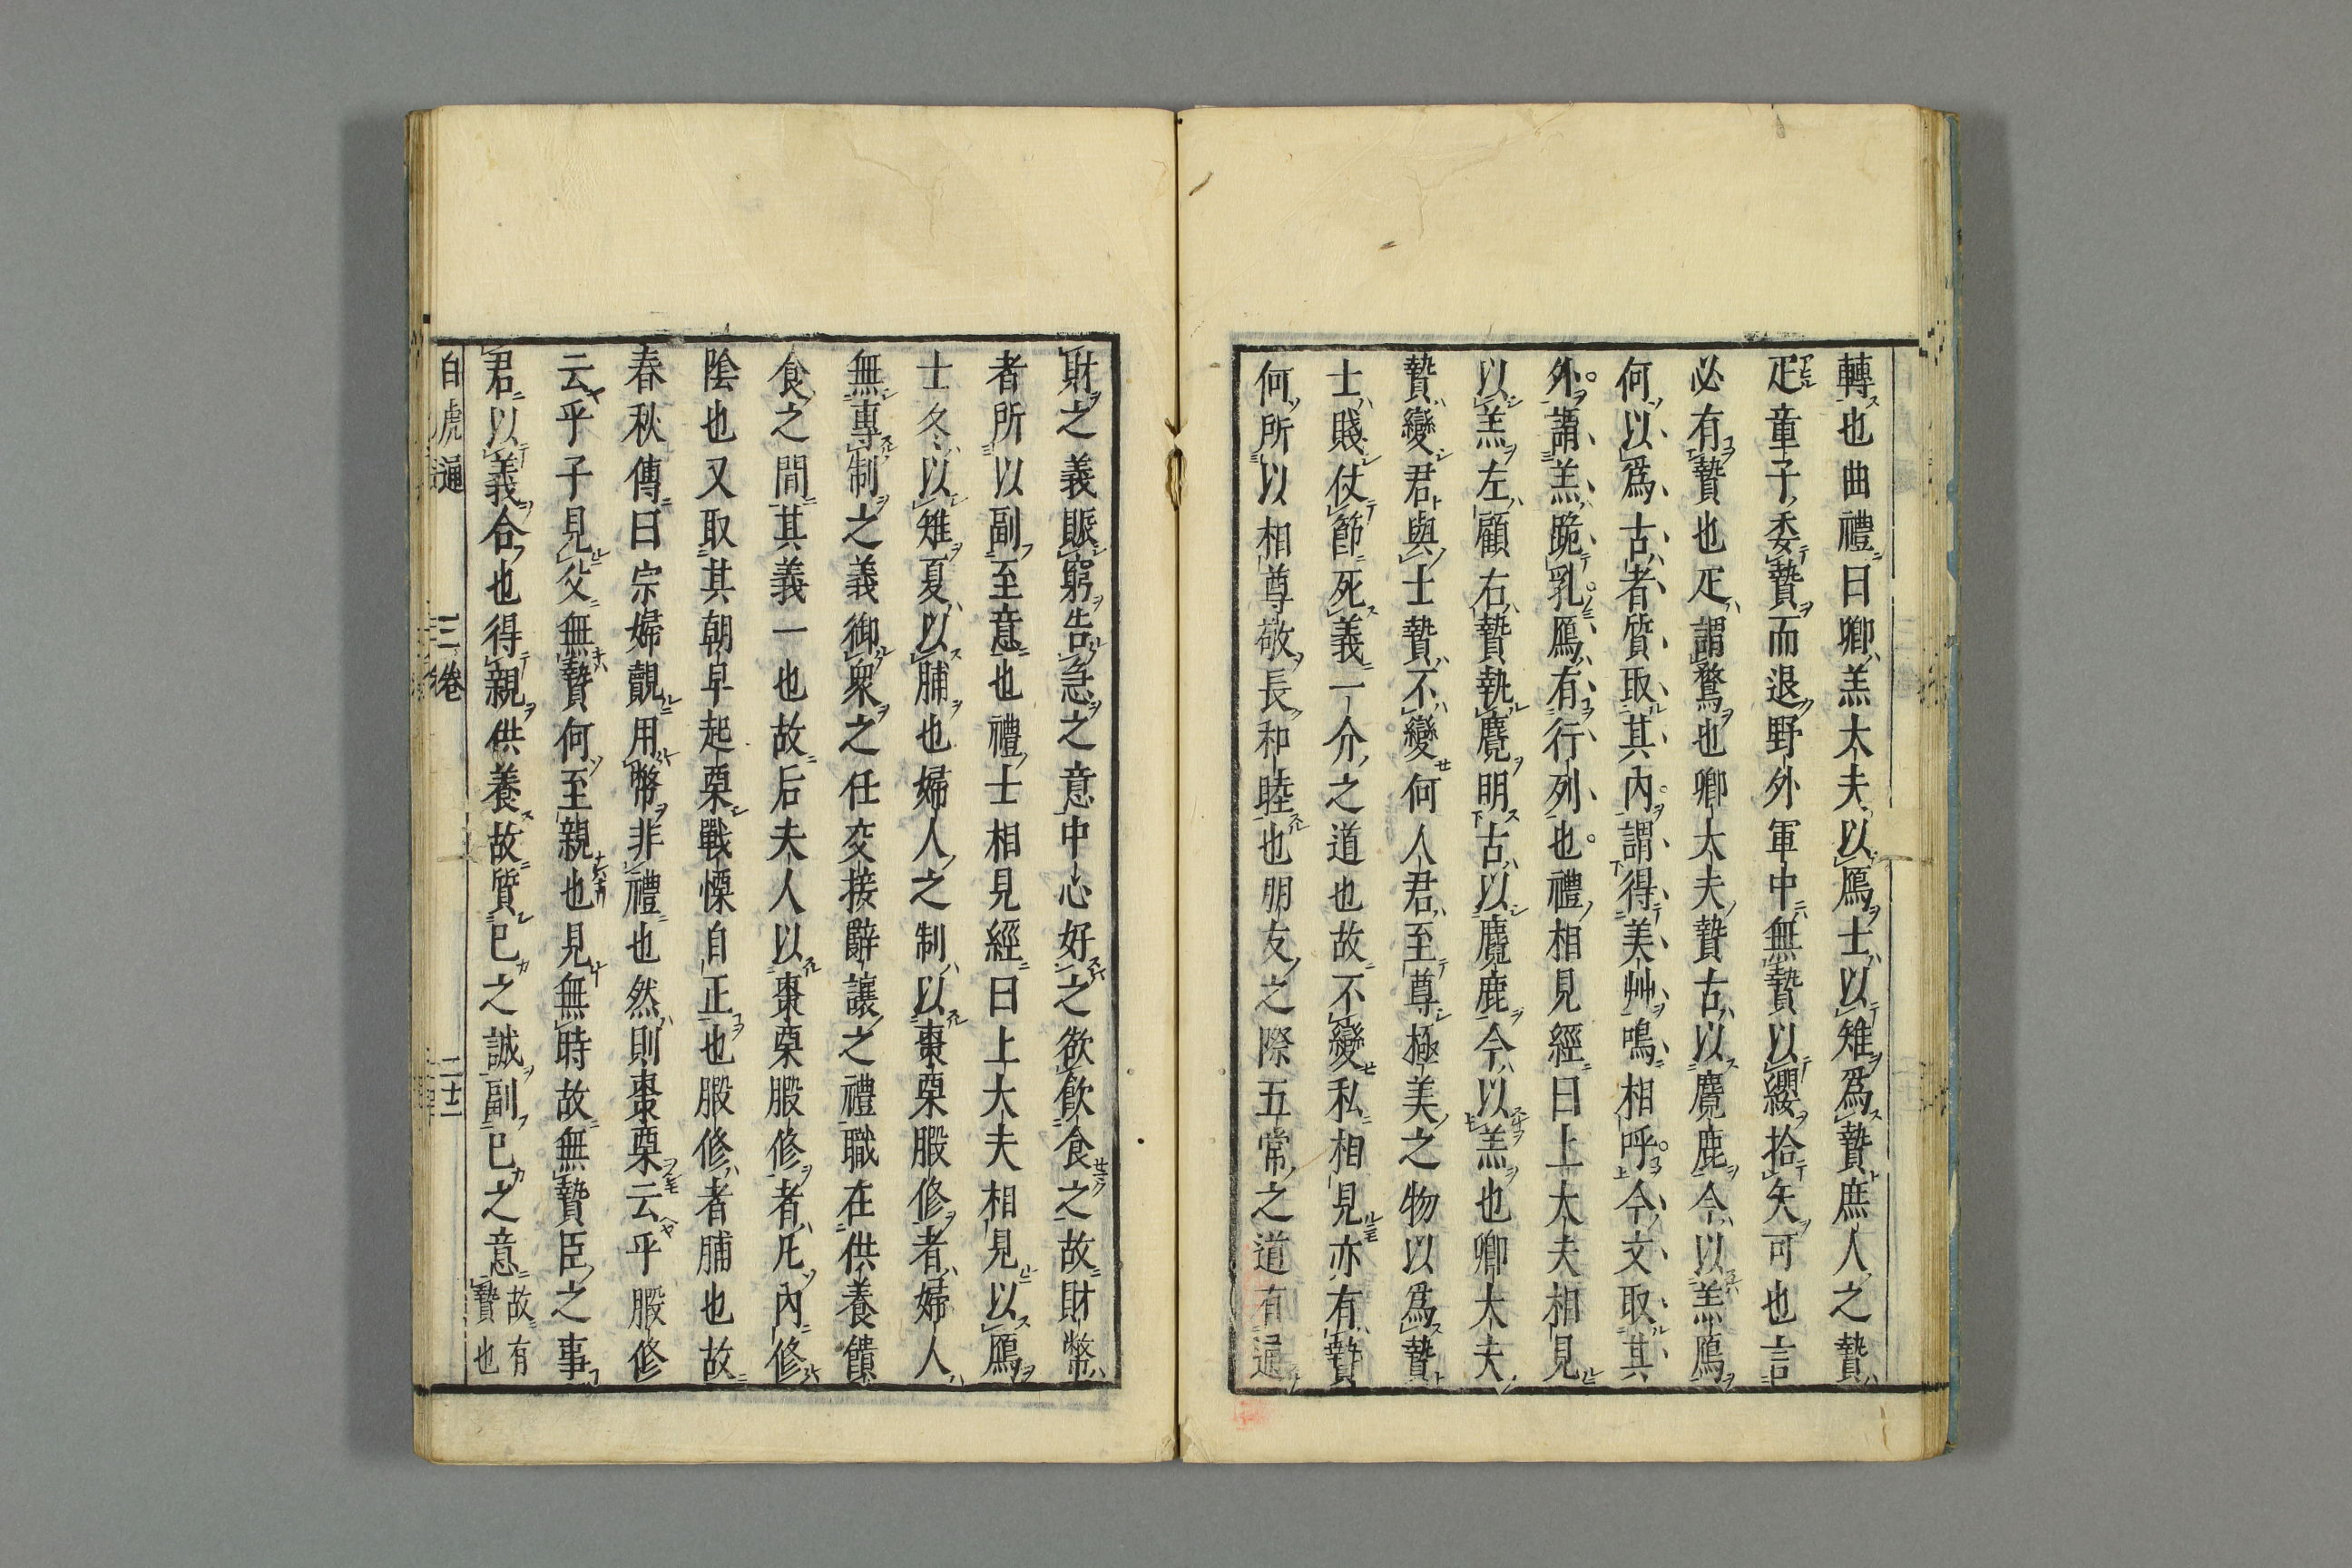 轉也曲禮曰卿羔大夫以鴈士以雉爲贄庶人之贄
疋童子委贄而退野外軍中無贄以纓拾矢可也言
必有贄也疋謂鶩也卿大夫贄古以麑鹿今以羔鴈
何以爲古者質取其內謂得美艸鳴相呼今文取其
外謂羔跪乳鴈有行列也禮相見經曰上大夫相見
以羔左顧右贄執麑明古以麑鹿今以羔也卿大夫
贄變君與士贄不變何人君至尊極美之物以爲贄
士賤仗節死義一介之道也故不變私相見亦有贄
何所以相尊敬長和睦也朋友之際五常之道有通
財之義賑窮告急之意中心好之欲飮食之故財幣
者所以副至意也禮士相見經曰上大夫相見以鴈
士冬以雉夏以脯也婦人之制以棗栗腶修者婦人
無專制之義御衆之任交接辭讓之禮職在供養饋
食之間其義一也故后夫人以棗栗腶修者凡內修
陰也又取其朝早起栗戰慄自正也腶修者脯也故
春秋傳曰宗婦覿用幣非禮也然則棗栗云乎腶修
云乎子見父無贄何至親也見無時故無贄臣之事
君以義合也得親供養故質已之誠副已之意故有
贄也
白虎通 三卷 二十二